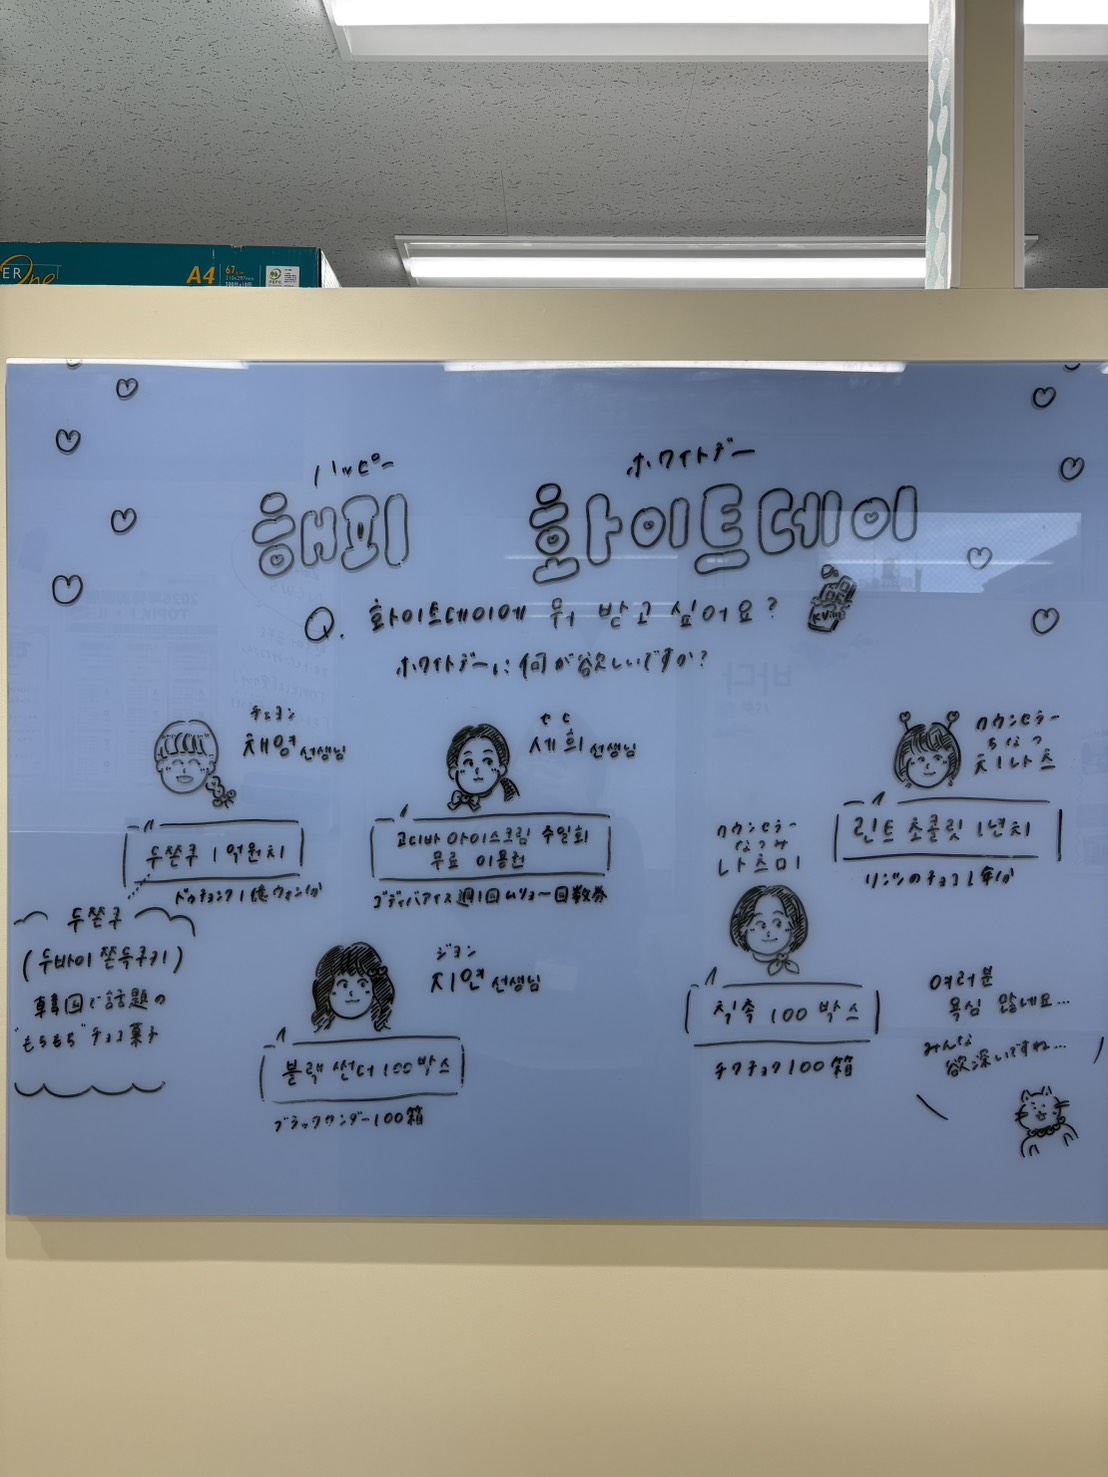 ER One
A4
67
ハッピー
해피
ホワイトデー
화이트데이
Q. 화이트데이에 뭐 받고 싶어요?
ホワイトデーに何が欲しいですか?
チェヨン
채영 선생님
두쫀쿠 1억원치
ドゥチョンク1億ウォン分
두쫀쿠
(두바이 쫀득쿠키)
韓国で話題の
"もちもち"チョコ菓子
セヒ
세희 선생님
고디바 아이스크림 주일회
무료 이용권
ゴディバアイス週1回ムリョー回数券
ジヨン
지연 선생님
블랙 썬더 100박스
ブラックサンダー100箱
カウンセラー
なつみ
나츠미
칙촉 100 박스
チクチョク100箱
カウンセラー
ちなつ
치나츠
린트 초콜릿 1년치
リンツのチョコ1年分
여러분
욕심 많네요...
みんな
欲深いですね...